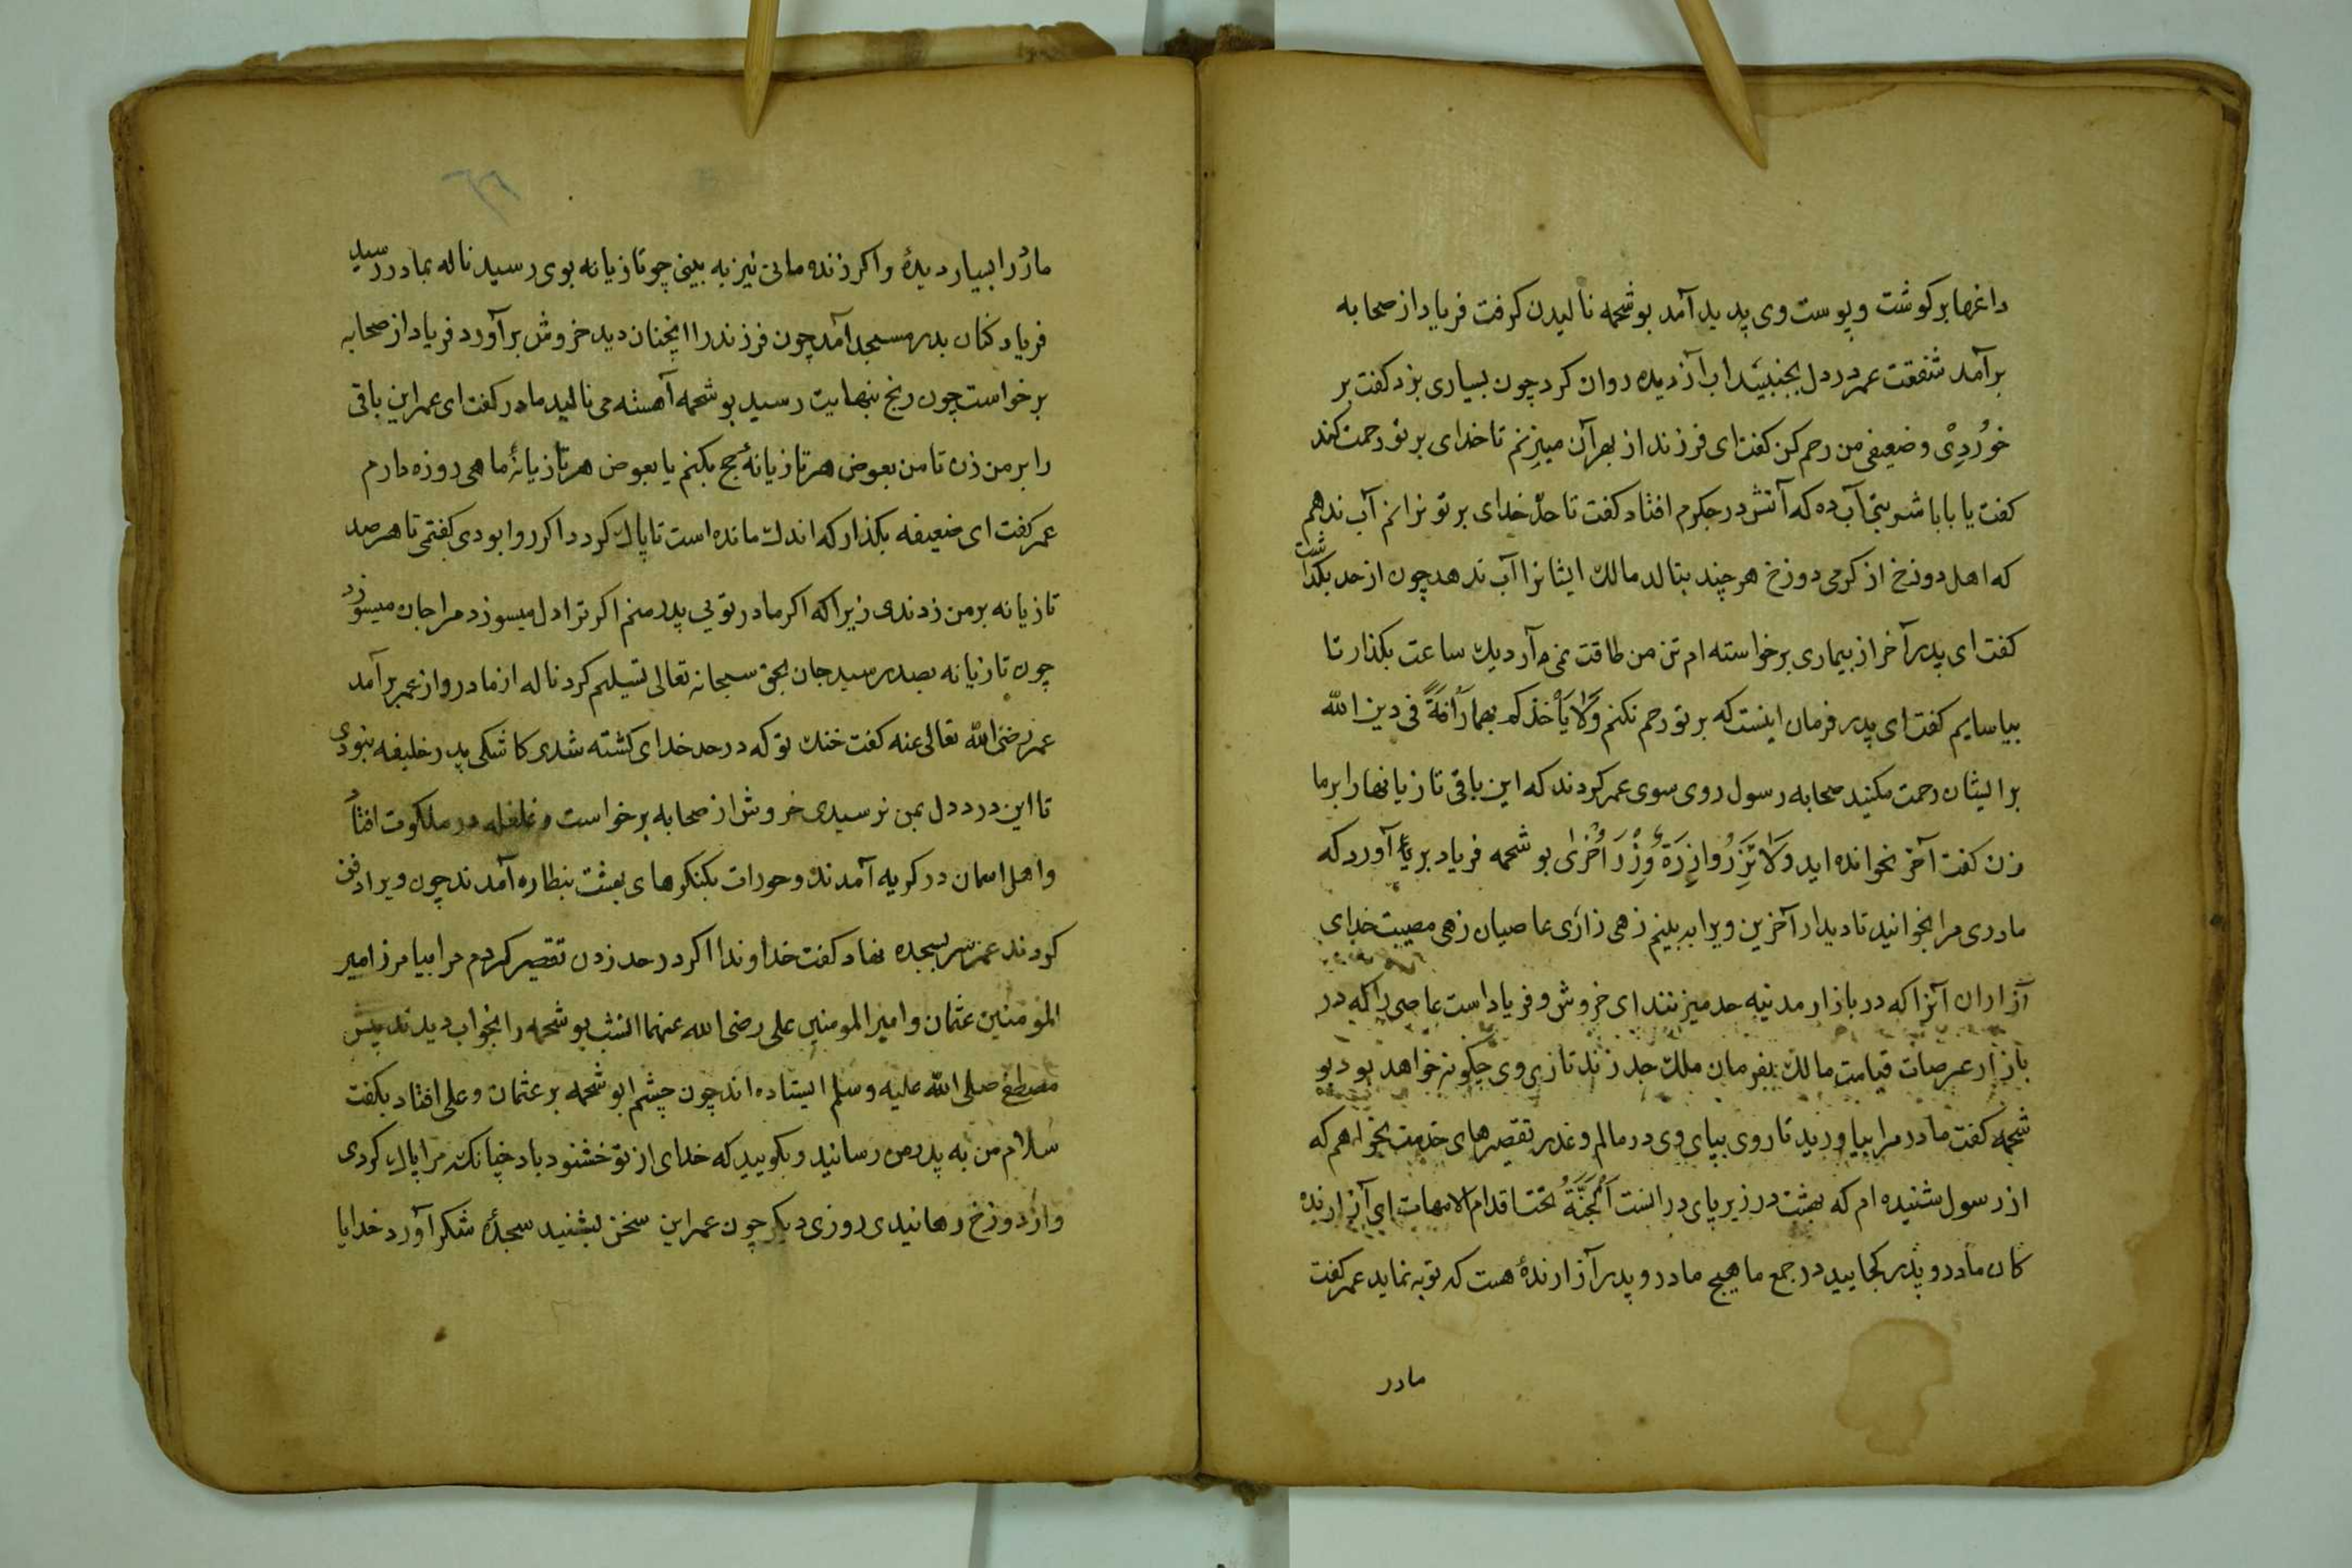 داغها بر کوشت و پوست وی پدید آمد بو شحمه نالیدن کرفت فریاد از صحابه
برآمد شفقت عمر در دل بجنبید اب از دیده روان کرد چون بسیاری بزد کفت بر
خوُردِیْ و ضعیفی من رحم کن کفت ای فرزند از بهر آن میزنم تا خدای بر تو رحمت کند
کفت یا بابا شربتی آب ده که آتش در جکرم افتاد کفت تا حدّ خدای بر تو نرانم آب ندهم
که اهل دوزخ از کرمی دوزخ هر چند بنالد مالك ایشانرا آب ندهد چون از حد بکذاشت
کفت ای پدر آخر از بیماری برخواسته ام تن من طاقت نمی آرد یك ساعت بکذار تا
بیاسایم کفت ای پدر فرمان اینست که بر تو رحم نکنم وَلَا یَأْخذکم بهما رَأْفَةً فی دین الله
بر ایشان رحمت مکنید صحابه رسول روی سوی عمر کردند که این باقی تازیانها را بر ما
زن کفت آخر نخوانده اید وَلَا تَزِرُ وازِرَةٌ وِزْرَ اُخْرٰی بو شحمه فریاد بر آورد که
مادری مرا بخوانید تا دیدار آخرین ویرا ببینم زهی زارٔی عاصیان زهی مصیبت خدای
آزاران آنرا که در بازار مدینه حد میزنند ای خروش و فریاد است عاصی را که در
بازار عرصات قیامت مالك بفرمان ملك حد زند تا زاری وی چکونه خواهد بود بو
شحمه کفت مادر مرا بیاورید تا روی بپای وی در مالم و عذر تقصیرهای خدمت بخواهم که
از رسول شنیده ام که بهشت در زیر پای مادرانست اَلْجَنَّةُ تحت اقدام الامهات ای آزارنده
کان مادر و پدر کجایید در جمع ما هیچ مادر و پدر آزارندهٔ هست که توبه نماید عمر کفت
مادر
مادر را بسیار دیدهٔ و اکر زنده مانی نیز به بینی چو تازیانه بوی رسید ناله بمادر رسید
فریاد کنان بدر مسجد آمد چون فرزند را ایچنان دید خروش برآورد فریاد از صحابه
برخواست چون رنج بنهایت رسید بو شحمه آهسته می نالید مادر کفت ای عمر این باقی
را بر من زن تا من بعوض هر تازیانهٔ حج بکنم یا بعوض هر تازیانهٔ ماهی روزه دارم
عمر کفت ای ضعیفه بکذار که اندك مانده است تا پاك کردد اکر روا بودی کفتمی تا هر صد
تازیانه بر من زدندی زیرا که اکر مادر تویی پدر منم اکر ترا دل میسوزد مرا جان میسوزد
چون تازیانه بصد رسید جان بحق سبحانه تعالی تسلیم کرد ناله از مادر و از عمر برآمد
عمر رضی الله تعالی عنه کفت خنك تو که در حد خدای کشته شدی کاشکی پدر خلیفه نبودی
تا این درد دل بمن نرسیدی خروش از صحابه برخواست و غلغله در ملکوت افتاد
و اهل اسمان در کریه آمدند و حوران بکنکرهای بهشت بنظاره آمدند چون ویرا دفن
کردند عمر سر بسجده نهاد کفت خداوندا اکر در حد زدن تقصیر کردم مرا بیامرز امیر
المومنین عثمان و امیر المومنین علی رضی الله عنهما انشب بو شحمه را بخواب دیدند پیش
مصطفی صلی الله علیه وسلم ایستاده اند چون چشم ابو شحمه بر عثمان و علی افتاد بکفت
سلام من به پدر من رسانید و بکویید که خدای از تو خشنود باد چنانکه مرا پاك کردی
و از دوزخ رهانیدی روزی دیکر چون عمر این سخن بشنید سجدهٔ شکر آورد خدایا